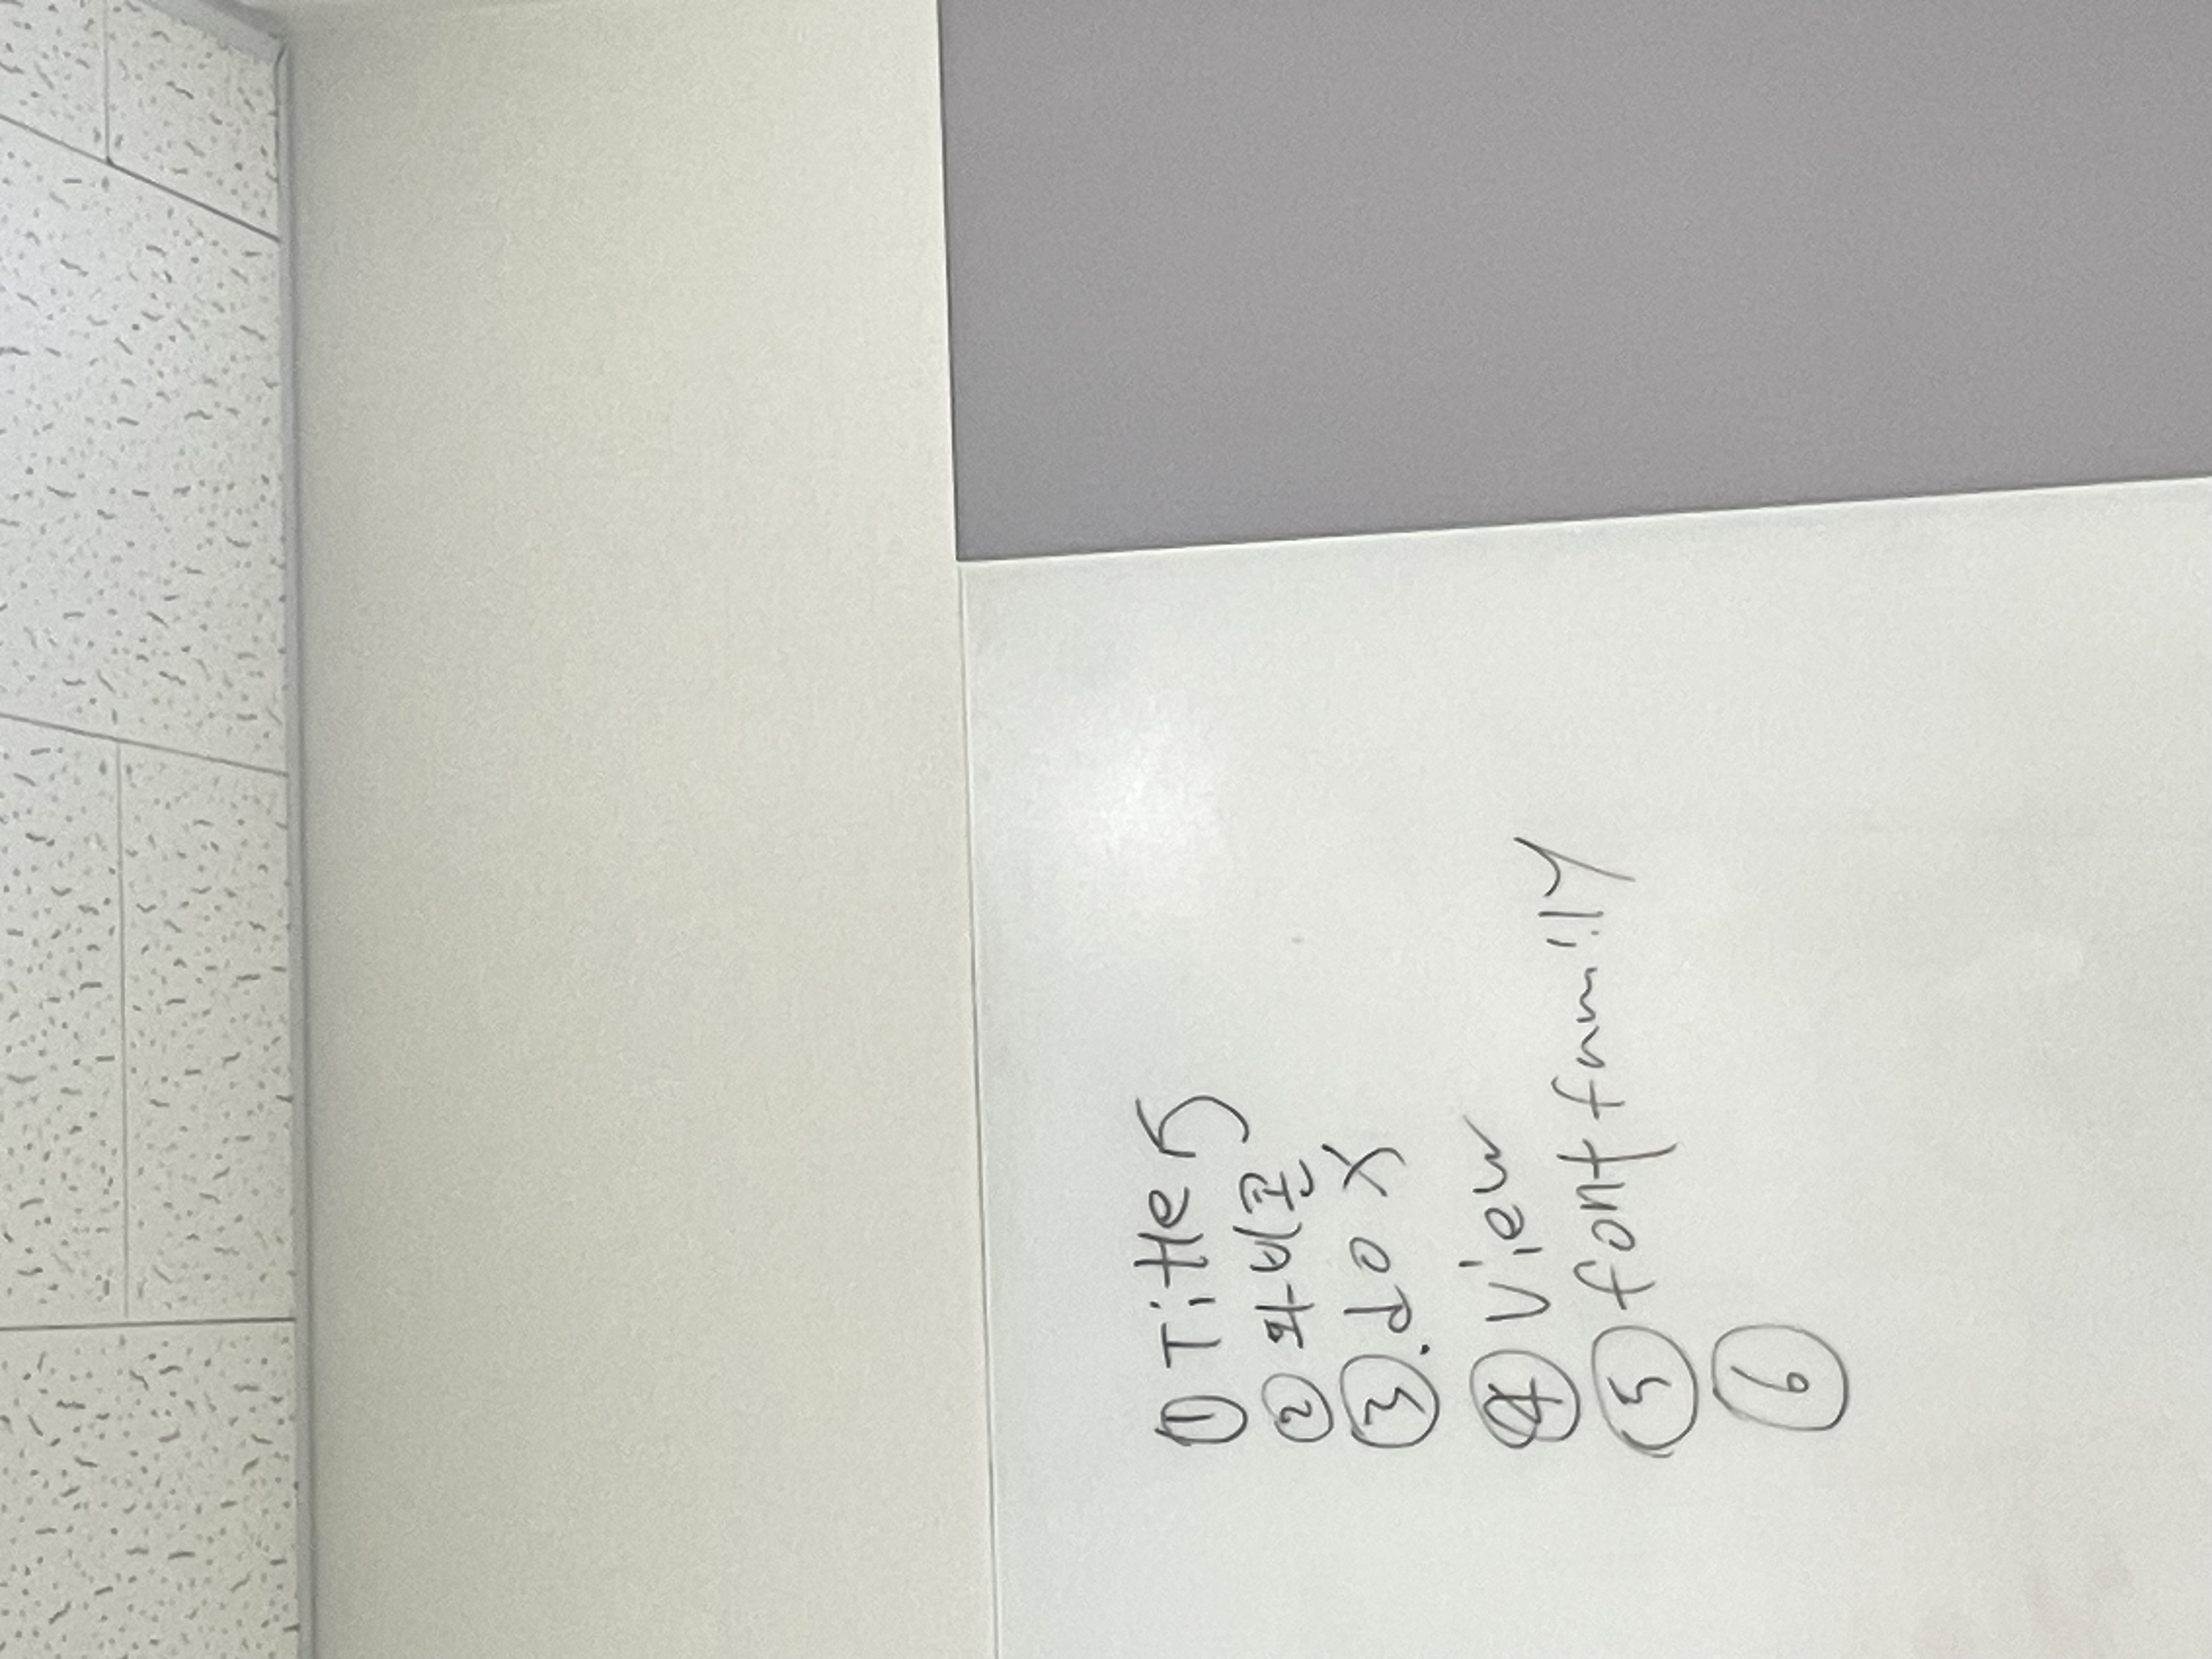 ① Title
② 파비콘
③ .do X
④ View
⑤ font family
⑥